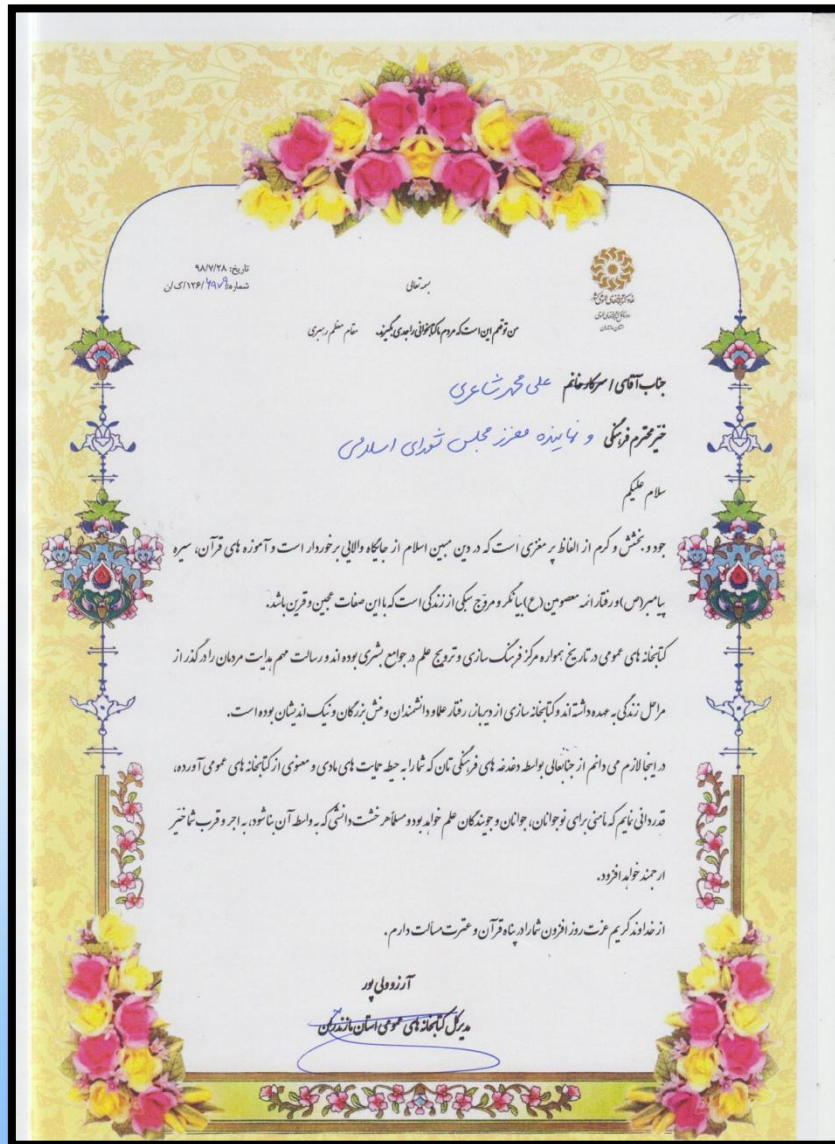 تاریخ: ۹۸/۷/۲۸
شماره: ۱۲۶/۶۹۷۹/ک ان
نهاد کتابخانه‌های عمومی کشور
اداره کل کتابخانه‌های عمومی
استان مازندران
بسمه تعالی
من توقعم این است که مردم ما کتابخوانی را جدی بگیرند. مقام معظم رهبری
جناب آقای / سرکار خانم علی محمد شاعری
خیّر محترم فرهنگی و نماینده معزز مجلس شورای اسلامی
سلام علیکم
جود و بخشش و کرم از الفاظ پر مغزی است که در دین مبین اسلام از جایگاه والایی برخوردار است و آموزه های قرآن، سیره
پیامبر(ص) و رفتار ائمه معصومین(ع) بیانگر و مروّج سبکی از زندگی است که با این صفات عجین و قرین باشد.
کتابخانه های عمومی در تاریخ همواره مرکز فرهنگ سازی و ترویج علم در جوامع بشری بوده اند و رسالت مهم هدایت مردمان را در گذر از
مراحل زندگی به عهده داشته اند و کتابخانه سازی از دیرباز، رفتار علما و دانشمندان و منش بزرگان و نیک اندیشان بوده است.
در اینجا لازم می دانم از جنابعالی بواسطه دغدغه های فرهنگی تان که شما را به حیطه حمایت های مادی و معنوی از کتابخانه های عمومی آورده،
قدردانی نمایم که مأمنی برای نوجوانان، جوانان و جویندگان علم خواهد بود و مسلماً هر خشت دانشی که به واسطه آن بنا شود، به اجر و قرب شما خیّر
ارجمند خواهد افزود.
از خداوند کریم عزت روز افزون شما را در پناه قرآن و عترت مسألت دارم.
آرزو ولی پور
مدیرکل کتابخانه های عمومی استان مازندران